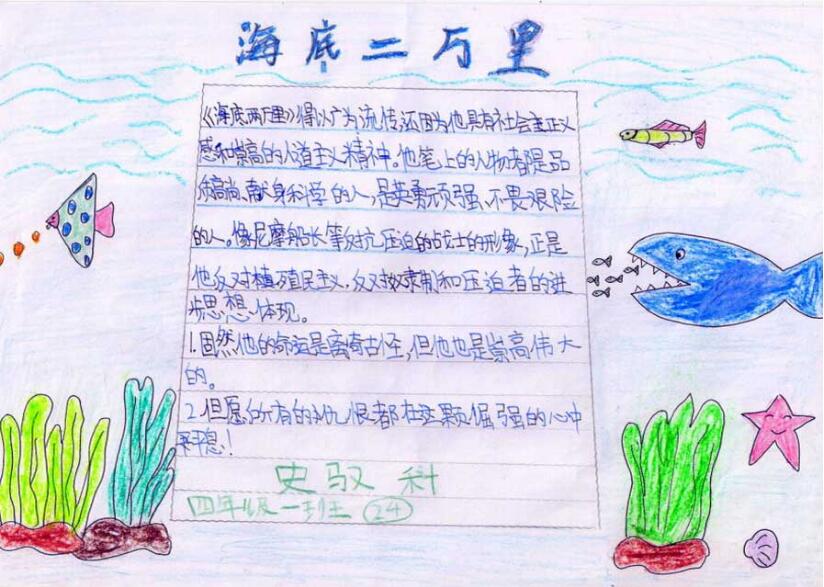 海底二万里
《海底两万里》得以广为流传,还因为他具有社会主正义
感和崇高的人道主义精神。他笔上的人物都是品
质高尚、献身科学的人,是英勇顽强、不畏艰险
的人。像尼摩船长等反抗压迫的战士的形象,正是
他反对植殖民主义,反对奴隶制和压迫者的进
步思想体现。
1.固然他的命运是离奇古怪,但他也是崇高伟大
的。
2.但愿所有的仇恨都在这颗倔强的心中
平息!
史驭科
四年级一班 24